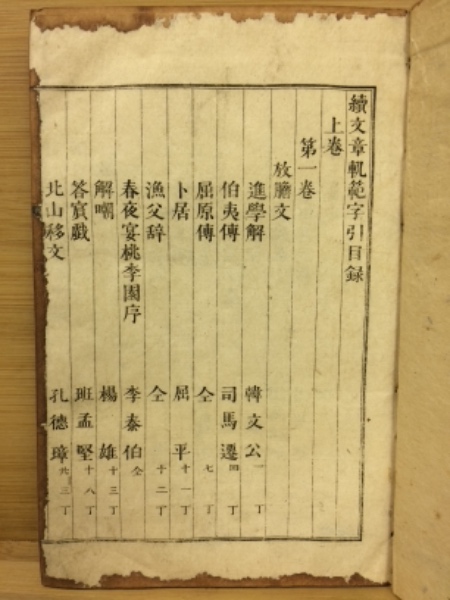 續文章軌範字引目録
上卷
第一卷
放膽文
進學解 韓文公 一丁
伯夷傳 司馬遷 四丁
屈原傳 仝 七丁
卜居 屈平 十一丁
漁父辞 仝 十二丁
春夜宴桃李園序 李泰伯 仝
解嘲 楊雄 十三丁
答賓戯 班孟堅 十八丁
北山移文 孔德璋 廿三丁